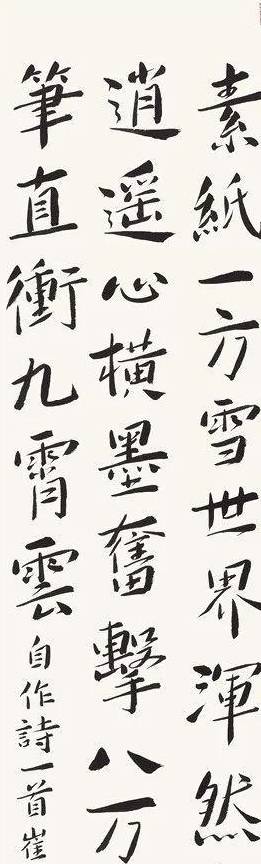 素紙一方雪世界渾然
逍遥心橫墨奮擊八万
筆直衝九霄雲自作詩一首崔